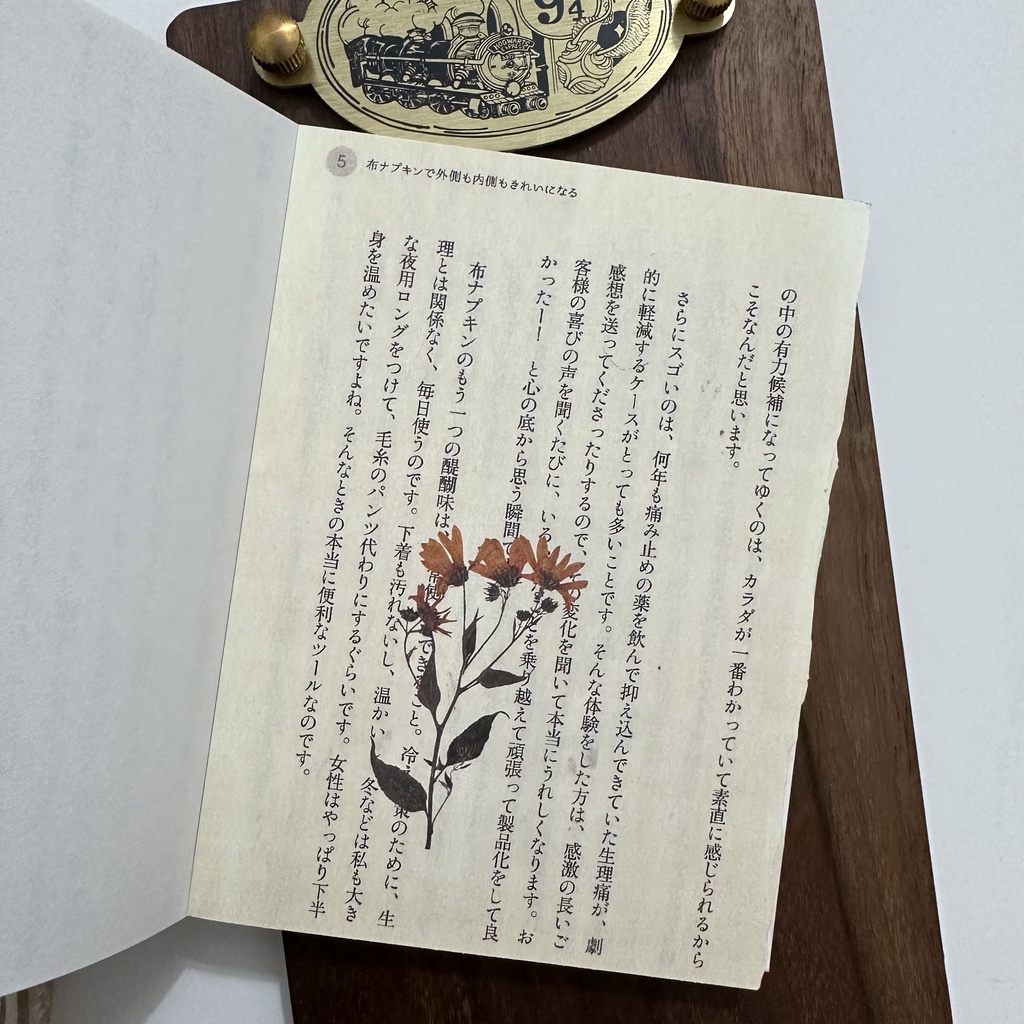 9 4
HOGWARTS
5 布ナプキンで外側も内側もきれいになる
の中の有力候補になってゆくのは、カラダが一番わかっていて素直に感じられるから
こそなんだと思います。
さらにスゴいのは、何年も痛み止めの薬を飲んで抑え込んできていた生理痛が、劇
的に軽減するケースがとっても多いことです。そんな体験をした方は、感激の長いご
感想を送ってくださったりするので、その変化を聞いて本当にうれしくなります。お
客様の喜びの声を聞くたびに、いろ ことを乗り越えて頑張って製品化をして良
かったー! と心の底から思う瞬間で
布ナプキンのもう一つの醍醐味は できること。冷え 策のために、生
理とは関係なく、毎日使うのです。下着も汚れないし、温かい 冬などは私も大き
な夜用ロングをつけて、毛糸のパンツ代わりにするぐらいです。女性はやっぱり下半
身を温めたいですよね。そんなときの本当に便利なツールなのです。